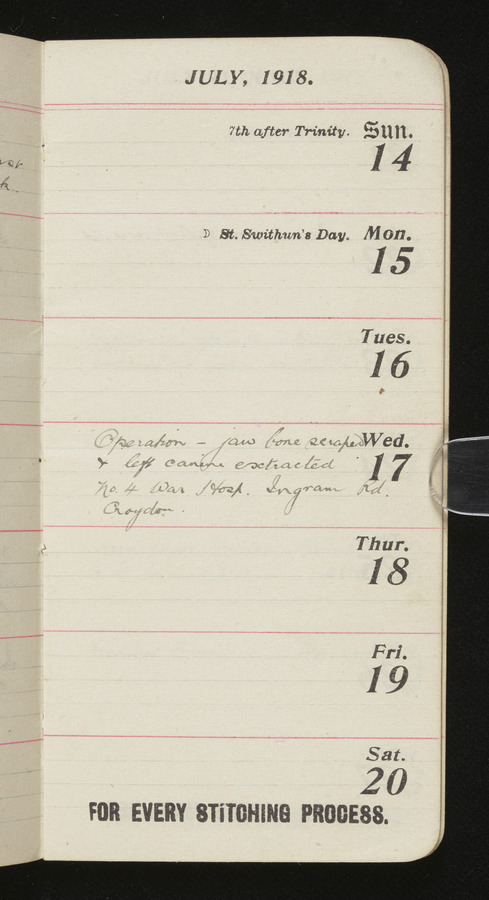 JULY, 1918.
7th after Trinity. Sun.
14
☽ St. Swithun's Day. Mon.
15
Tues.
16
Operation – jaw bone scraped Wed.
& left canine extracted 17
No. 4 War Hosp. Ingram Rd.
Croydon.
Thur.
18
Fri.
19
Sat.
20
FOR EVERY STITCHING PROCESS.